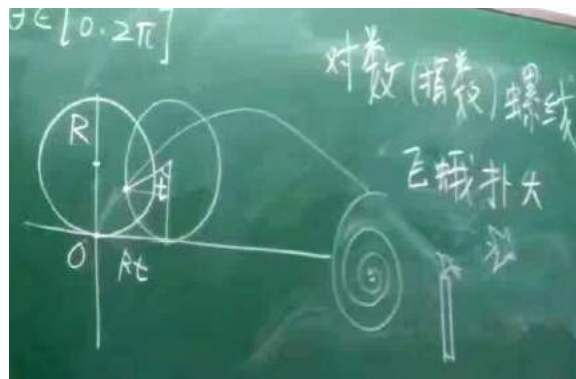 θ∈[0.2π]
对数(指数)螺线
R
飞蛾扑火
t
O
Rt